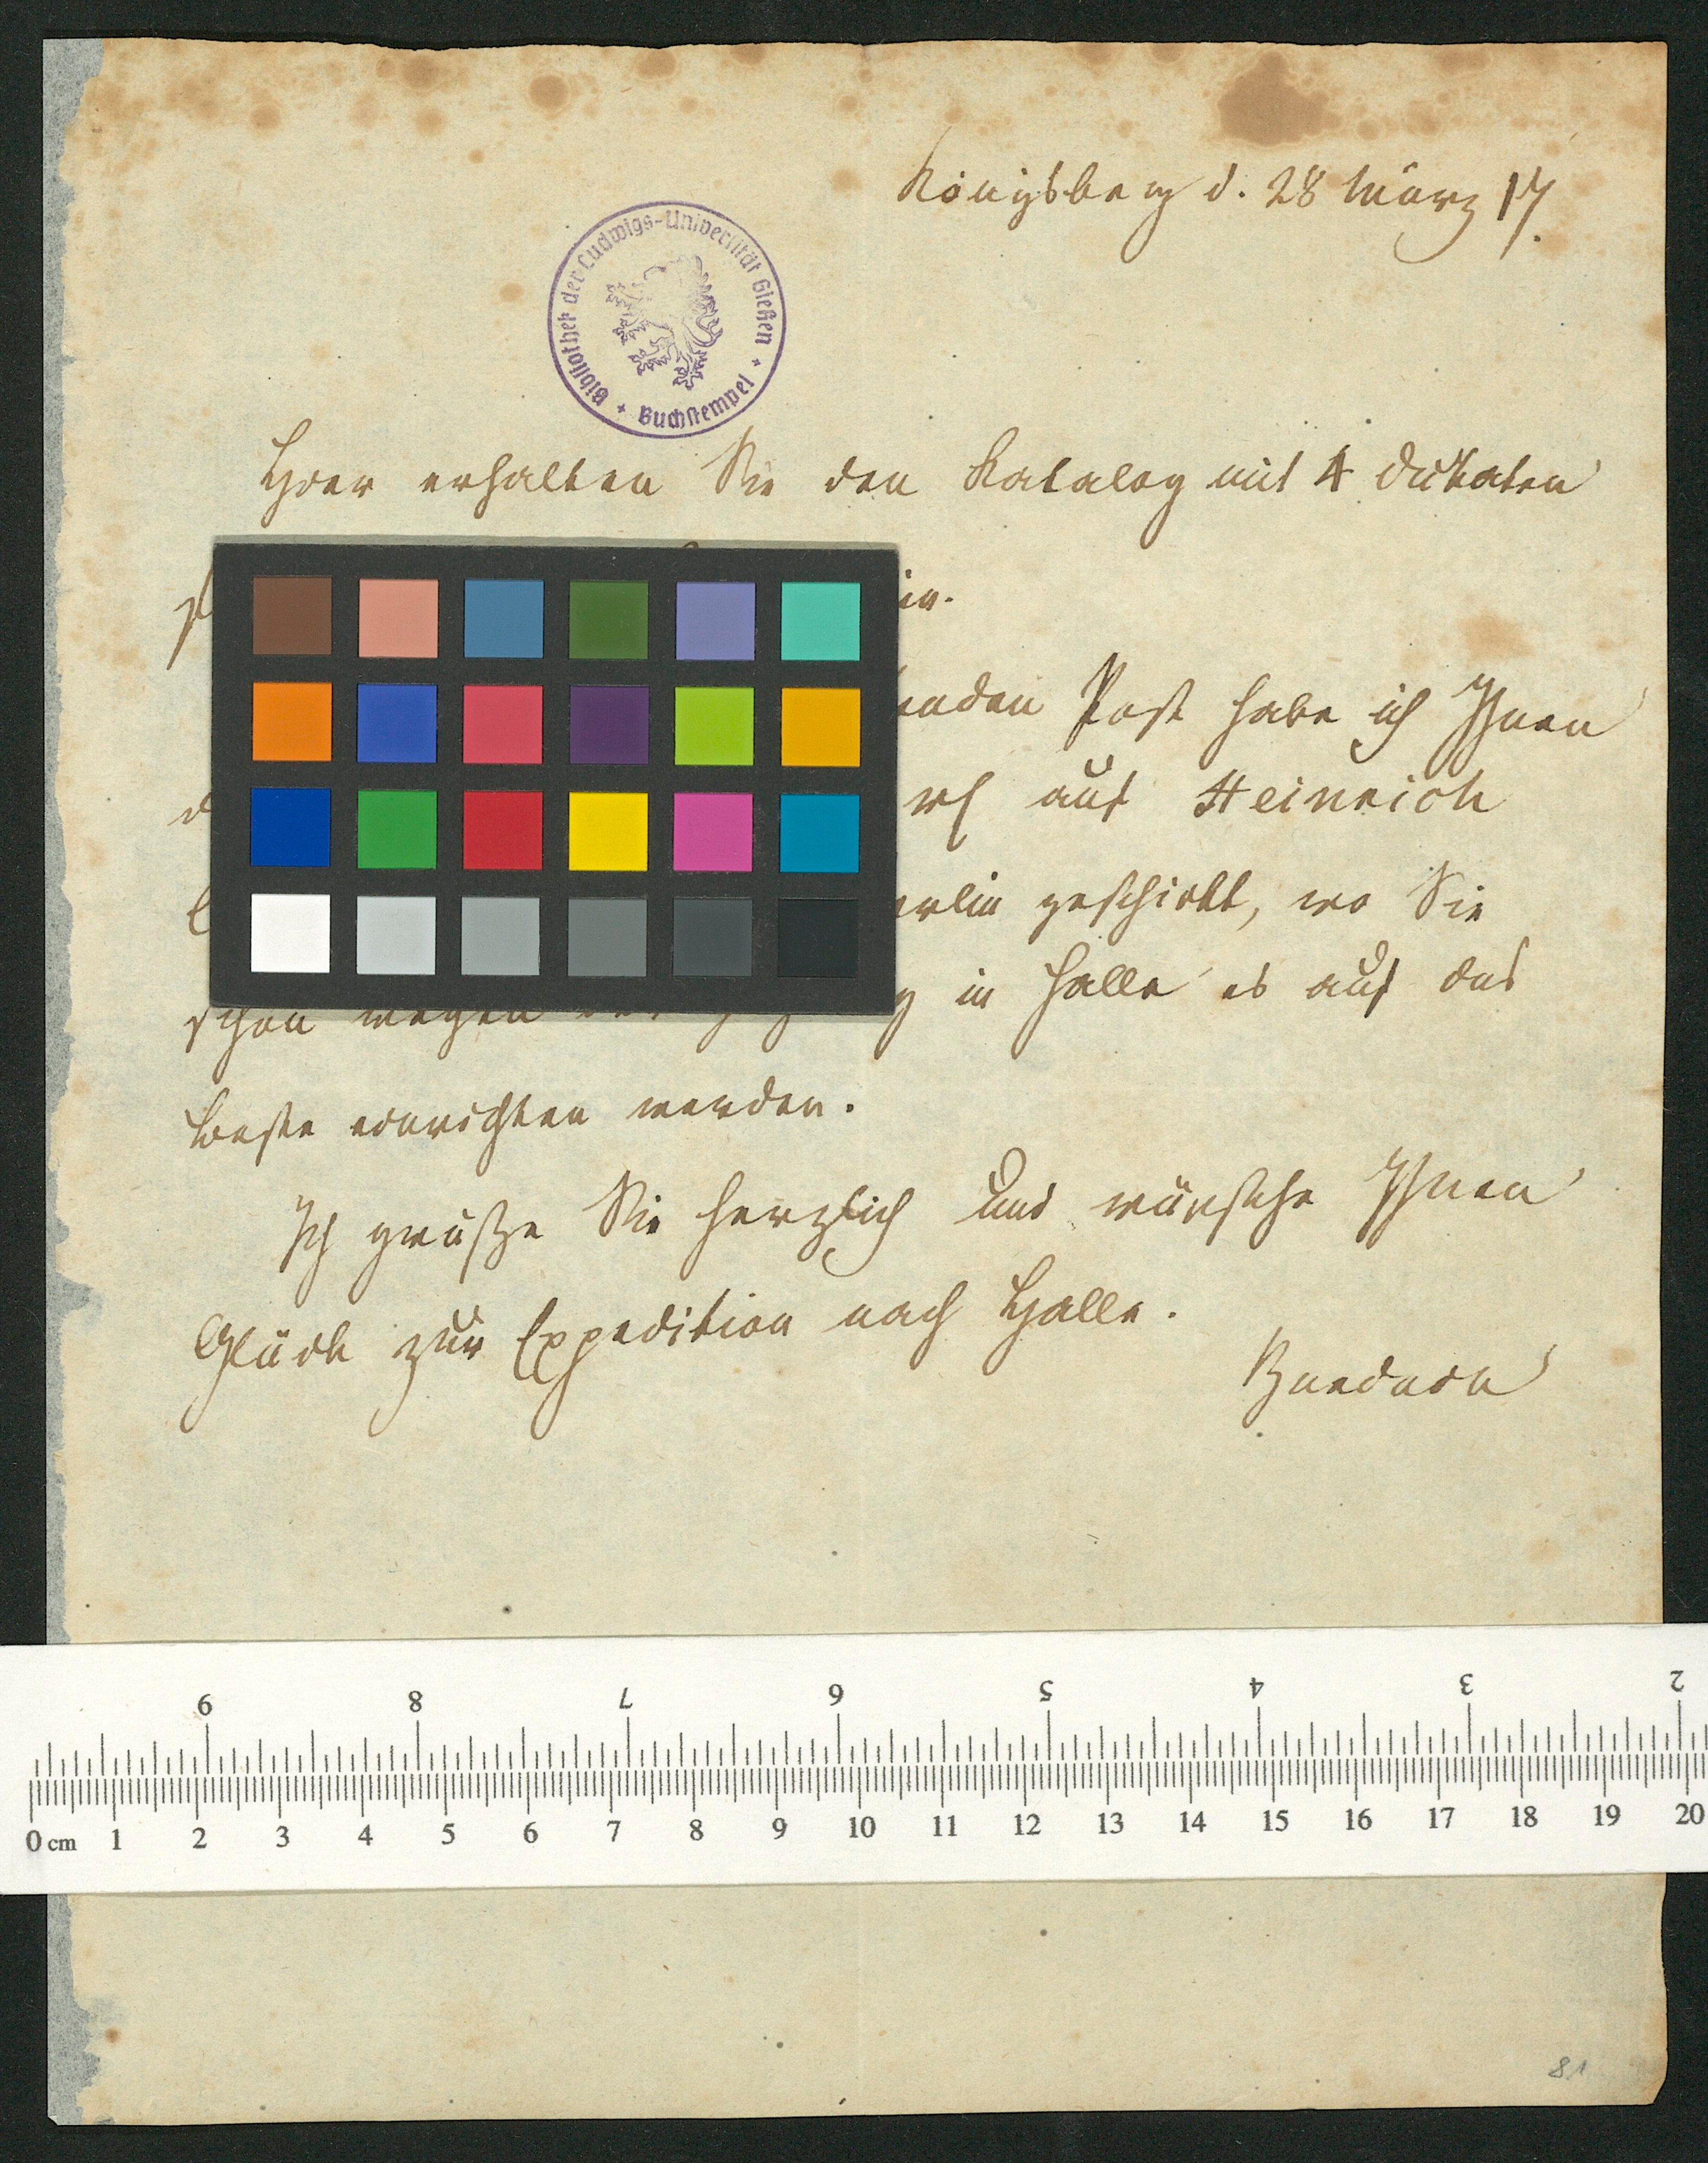 Königsberg d. 28 März 17
Bibliothek der Ludwigs-Universität Gießen + Buchstempel +
Hier erhalten Sie den Katalog mit 4 Dukaten
in.
enden Post habe ich Ihnen
auf Heinrich
erlin geschickt, wo Sie
schon wegen in Halle es auf das
beste einrichten werden.
Ich grüße Sie herzlich und wünsche Ihnen
Glück zur Expedition nach Halle.
Burdach
9 8 7 6 5 4 3 2
0 cm 1 2 3 4 5 6 7 8 9 10 11 12 13 14 15 16 17 18 19 20
81